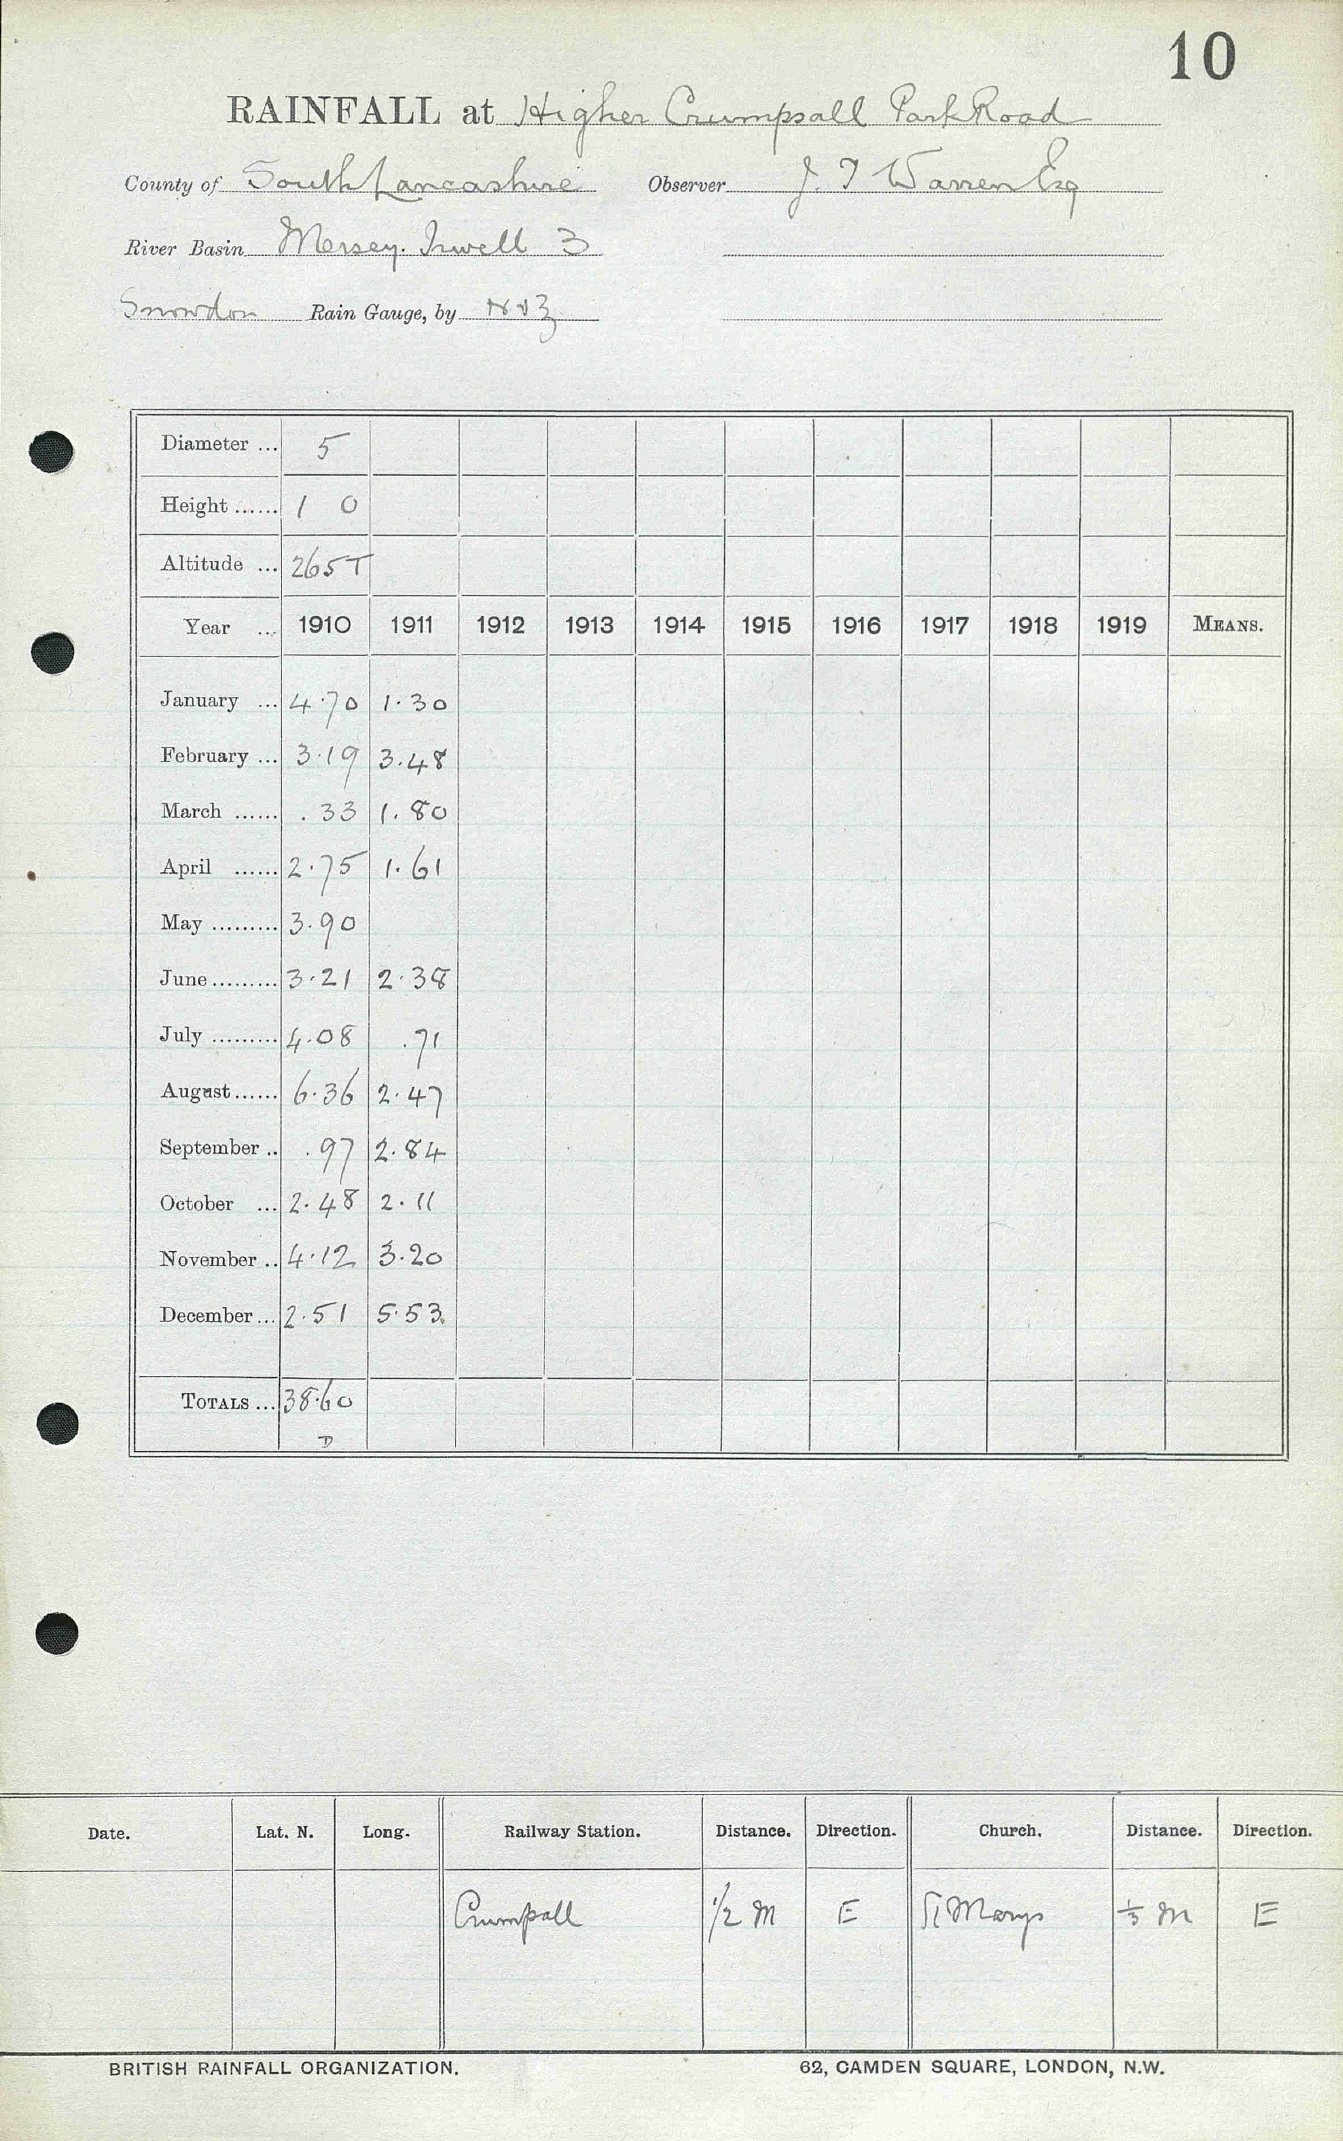 10
RAINFALL at Higher Crumpsall Park Road
County of South Lancashire Observer J. T Warren Esq
River Basin Mersey. Irwell 3
Snowdon Rain Gauge, by N & Z
Diameter ... 5
Height ...... 1 0
Altitude ... 265T
Year ... 1910 1911 1912 1913 1914 1915 1916 1917 1918 1919 MEANS.
January ... 4.70 1.30
February ... 3.19 3.48
March ...... .33 1.80
April ...... 2.75 1.61
May ......... 3.90
June ......... 3.21 2.38
July ......... 4.08 .71
August ...... 6.36 2.47
September .. .97 2.84
October ... 2.48 2.11
November .. 4.12 3.20
December ... 2.51 5.53
TOTALS ... 38.60
D
Date. Lat. N. Long. Railway Station. Distance. Direction. Church. Distance. Direction.
Crumpsall 1/2 M E St Marys 1/3 M E
BRITISH RAINFALL ORGANIZATION. 62, CAMDEN SQUARE, LONDON, N.W.